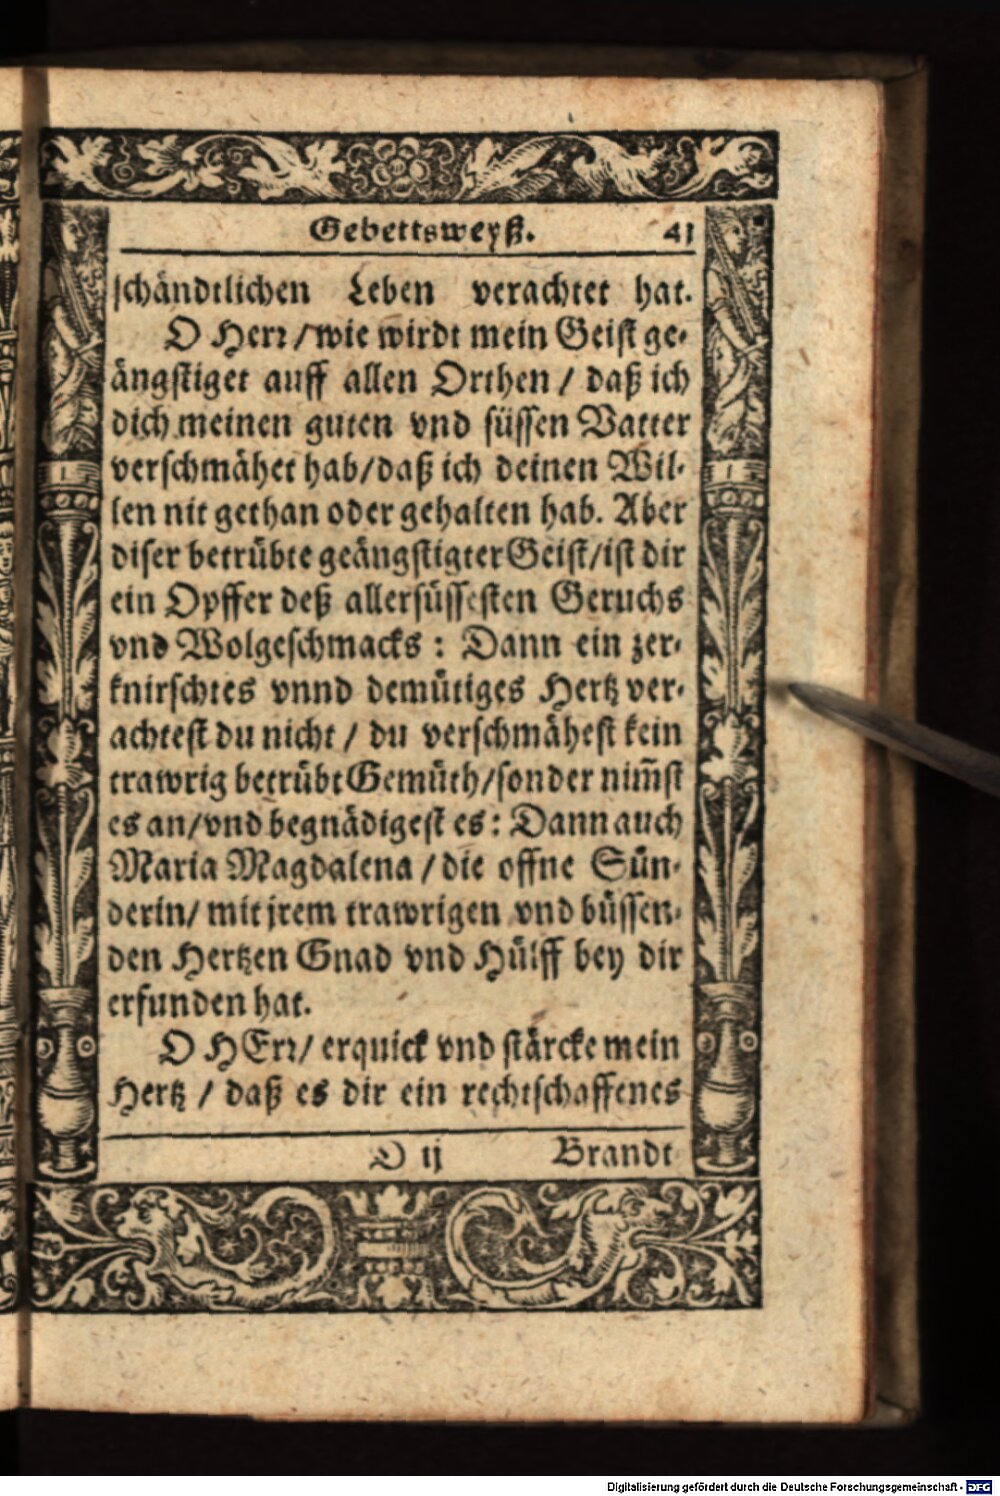 Gebettsweyß. 41
schändtlichen Leben verachtet hat.
O Herr/wie wirdt mein Geist ge-
ängstiget auff allen Orthen / daß ich
dich meinen guten vnd süssen Vatter
verschmähet hab/daß ich deinen Wil-
len nit gethan oder gehalten hab. Aber
diser betrübte geängstigter Geist/ist dir
ein Opffer deß allersüssesten Geruchs
vnd Wolgeschmacks : Dann ein zer-
knirschtes vnnd demütiges Hertz ver-
achtest du nicht / du verschmähest kein
trawrig betrübt Gemüth/sonder nim̃st
es an/vnd begnädigest es: Dann auch
Maria Magdalena / die offne Sün-
derin/ mit jrem trawrigen vnd büssen-
den Hertzen Gnad vnd Hülff bey dir
erfunden hat.
O HErr/ erquick vnd stärcke mein
Hertz / daß es dir ein rechtschaffenes
D ij Brandt
Digitalisierung gefördert durch die Deutsche Forschungsgemeinschaft - DFG